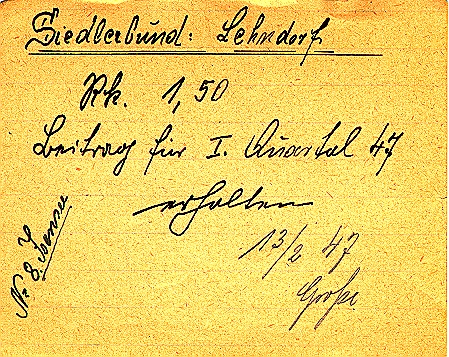 Siedlerbund: Lehndorf
Rk. 1,50
Beitrag für I. Quartal 47
erhalten
13/2 47
Große
Nr 8.